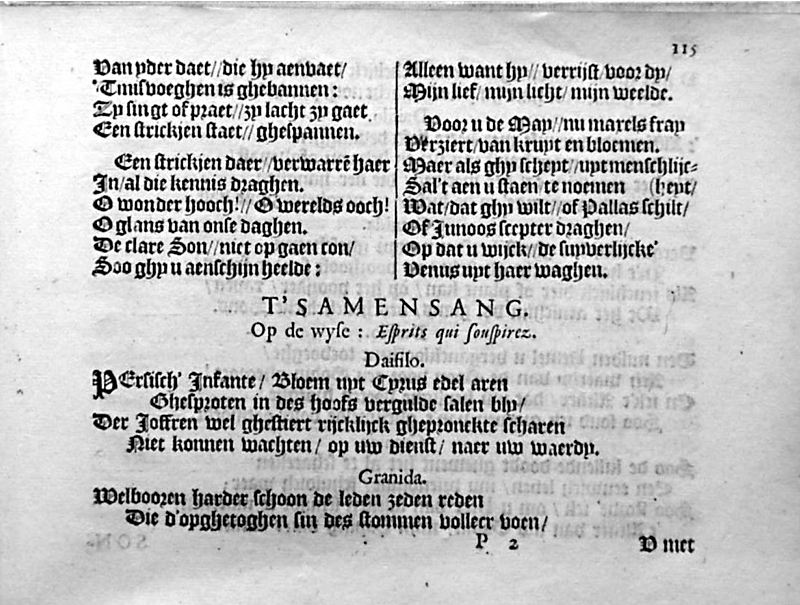 115
Van yder daet//die hy aenvaet/
'Tmisvoeghen is ghebannen:
Zy singt of praet//zy lacht zy gaet
Een strickjen staet//ghespannen.
Een strickjen daer//verwarrē haer
In/al die kennis draghen.
O wonder hooch!//O werelds ooch!
O glans van onse daghen.
De clare Son//niet op gaen con/
Soo ghy u aenschijn heelde:
Alleen want hy//verrijst/voor dy/
Mijn lief/mijn licht/mijn weelde.
Voor u de May//nu maxels fray
Verziert/van kruyt en bloemen.
Maer als ghy schept//uyt menschlijc-
Sal't aen u staen te noemen (hept/
Wat/dat ghy wilt//of Pallas schilt/
Of Junoos scepter draghen/
Op dat u wijck//de suyverlijcke
Venus uyt haer waghen.
T'SAMENSANG.
Op de wyse: Esprits qui souspirez.
Daifilo.
PErsisch' Infante/Bloem uyt Cyrus edel aren
Ghesproten in des hoofs vergulde salen bly/
Der Joffren wel ghestiert rijcklijck ghepronckte scharen
Niet konnen wachten/op uw dienst/naer uw waerdy.
Granida.
Welbooren harder schoon de leden zeden reden
Die d'opghetoghen sin des stommen volleer voen/
P 2
V met